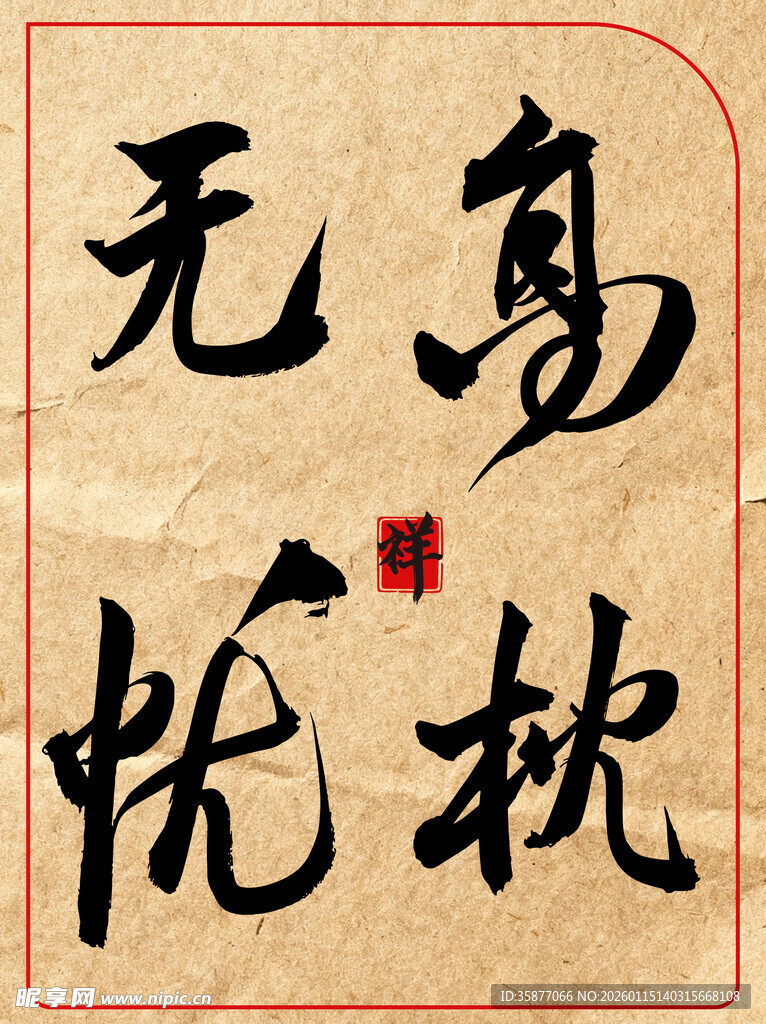 高枕
无忧
祥
昵享网 www.nipic.cn
ID:35877066 NO:20260115140315668108